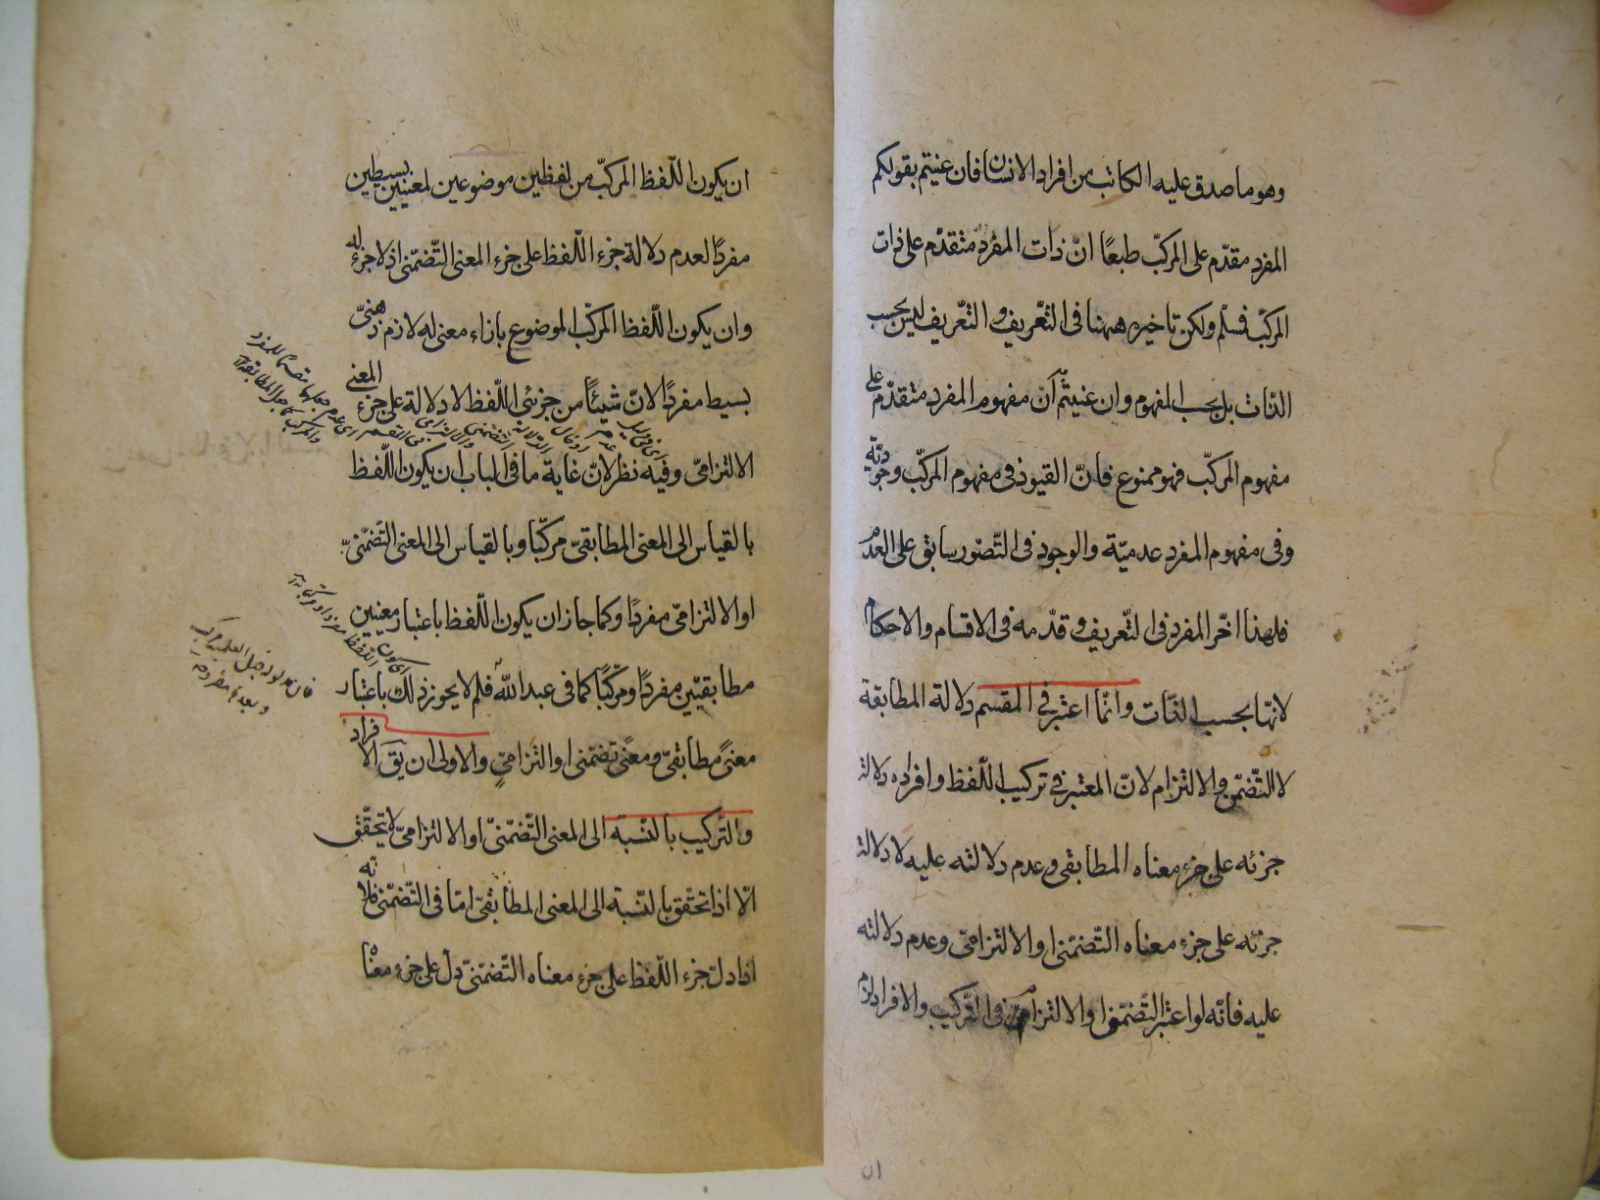 وهو ما صدق عليه الكاتب من افراد الانسان فان عنيتم بقولكم
المفرد مقدّم على المركّب طبعًا انّ ذات المفرد متقدّم على ذات
المركّب فسلّم ولكن تاخيره ههنا فى التّعريف و التّعريف ليس بحسب
الذّات بل بحسب المفهوم وان عنيتم به انّ مفهوم المفرد متقدّم على
مفهوم المركّب فهو ممنوع فانّ القيود فى مفهوم المركّب وجوديّة
وفى مفهوم المفرد عدميّة والوجود فى التّصور سابق على العدم
فلهذا اخّر المفرد فى التّعريف و قدّمه فى الاقسام والاحكام
لانّها بحسب الذّات وانّما اعتبر فى المقسم دلالة المطابقة
لا التّضمّن والالتزام لانّ المعتبر فى تركيب اللّفظ وافراده دلالة
جزئه على جزء معناه المطابقى وعدم دلالته عليه لا دلالة
جزئه على جزء معناه التّضمّنى او الالتزامىّ وعدم دلالته
عليه فانّه لو اعتبر التّضمّنى او الالتزامىّ فى التّركيب والافراد لزم
ان يكون اللّفظ المركّب من لفظين موضوعين لمعنيين بسيطين
مفردًا لعدم دلالة جزء اللّفظ على جزء المعنى التّضمّنى اذ لا جزء له
وان يكون اللّفظ المركّب الموضوع بازاء معنى له لازم ذهنىّ
بسيط مفردًا لانّ شيئًا من جزئى اللّفظ لا دلالة على جزء المعنى
الالتزامىّ وفيه نظر لانّ غاية ما فى الباب ان يكون اللّفظ
بالقياس الى المعنى المطابقىّ مركّبا وبالقياس الى المعنى التّضمّنىّ
او الالتزامىّ مفردًا وكما جاز ان يكون اللّفظ باعتبار معنيين
مطابقيّين مفردًا ومركّبًا كما فى عبد اللّه فلم لا يجوز ذلك باعتبار
معنىً مطابقىّ ومعنىً تضمّنى او التزامىّ والاولى ان يق الافراد
والتّركيب بالنّسبة الى المعنى التّضمّنىّ او الالتزامىّ لا يتحقّق
الّا اذا تحقّق بالنّسبة الى المعنى المطابقىّ امّا فى التّضمّنى فلانّه
اذا دلّ جزء اللّفظ على جزء معناه التّضمّنىّ دلّ على جزء معناه